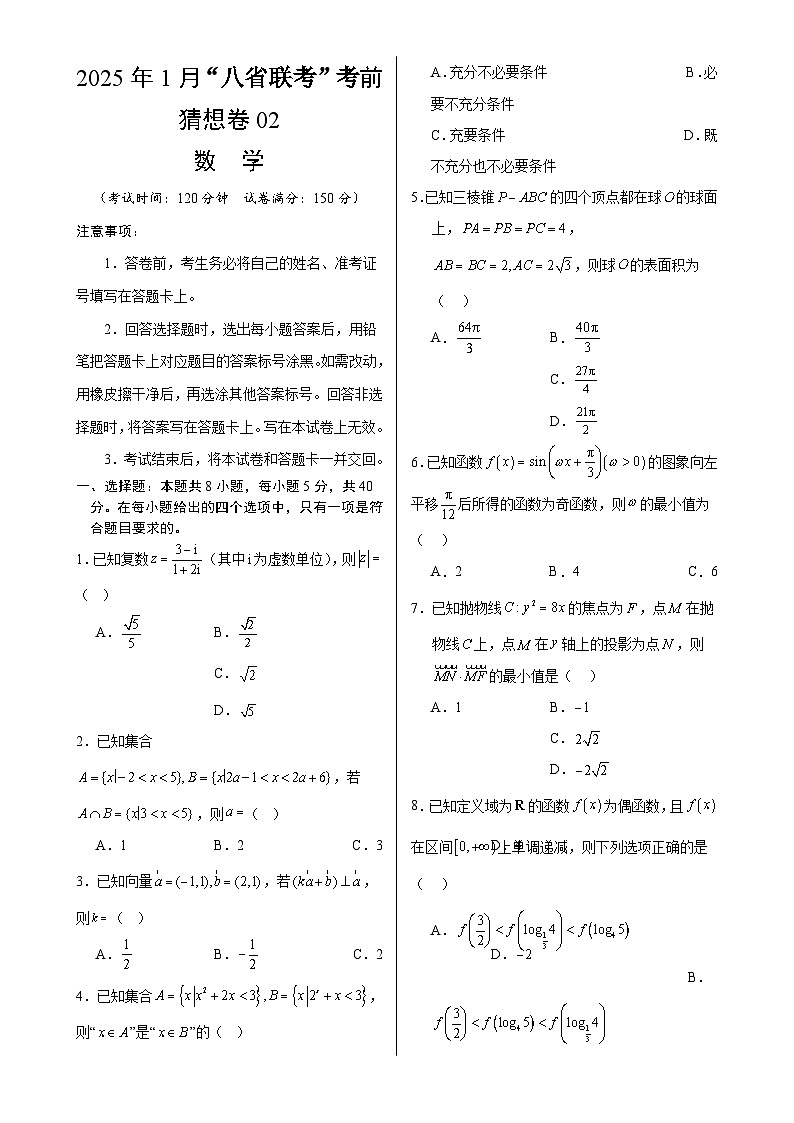 2025 年 1 月“八省联考”考前
猜想卷 02
数 学
（考试时间：120 分钟 试卷满分：150 分）
注意事项：
1．答卷前，考生务必将自己的姓名、准考证
号填写在答题卡上。
2．回答选择题时，选出每小题答案后，用铅
笔把答题卡上对应题目的答案标号涂黑。如需改动，
用橡皮擦干净后，再选涂其他答案标号。回答非选
择题时，将答案写在答题卡上。写在本试卷上无效。
3．考试结束后，将本试卷和答题卡一并交回。
一、选择题：本题共 8 小题，每小题 5 分，共 40
分。在每小题给出的四个选项中，只有一项是符
合题目要求的。
1.已知复数 z = (3−i)/(1+2i)（其中 i 为虚数单位），则|z| =
（ ）
A. √5/5 B. √2/2
C. √2
D. √5
2．已知集合
A = {x|−2 < x < 5}, B = {x|2a−1 < x < 2a+6}，若
A∩B = {x|3 < x < 5}，则 a =（ ）
A.1 B.2 C.3
3．已知向量 a = (−1,1), b = (2,1)，若 (ka+b)⊥a，
则 k =（ ）
A. 1/2 B. −1/2 C.2
4．已知集合 A = {x|x²+2x<3}, B = {x|2ˣ+x<3}，
则“ x∈A”是“ x∈B”的（ ）
A.充分不必要条件 B.必
要不充分条件
C.充要条件 D.既
不充分也不必要条件
5.已知三棱锥 P−ABC 的四个顶点都在球 O 的球面
上，PA = PB = PC = 4，
AB = BC = 2, AC = 2√3，则球 O 的表面积为
（ ）
A. 64π/3 B. 40π/3
C. 27π/4
D. 21π/2
6.已知函数 f(x) = sin(ωx+π/3)(ω>0) 的图象向左
平移 π/12 后所得的函数为奇函数，则 ω 的最小值为
（ ）
A.2 B.4 C.6
7．已知抛物线 C: y² = 8x 的焦点为 F，点 M 在抛
物线 C 上，点 M 在 y 轴上的投影为点 N，则
MN·MF 的最小值是（ ）
A.1 B. −1
C. 2√2
D. −2√2
8.已知定义域为 R 的函数 f(x) 为偶函数，且 f(x)
在区间 [0,+∞) 上单调递减，则下列选项正确的是
（ ）
A. f(3/2) < f(log_{1/3}4) < f(log₄5)
D. −2
B.
f(3/2) < f(log₄5) < f(log_{1/3}4)